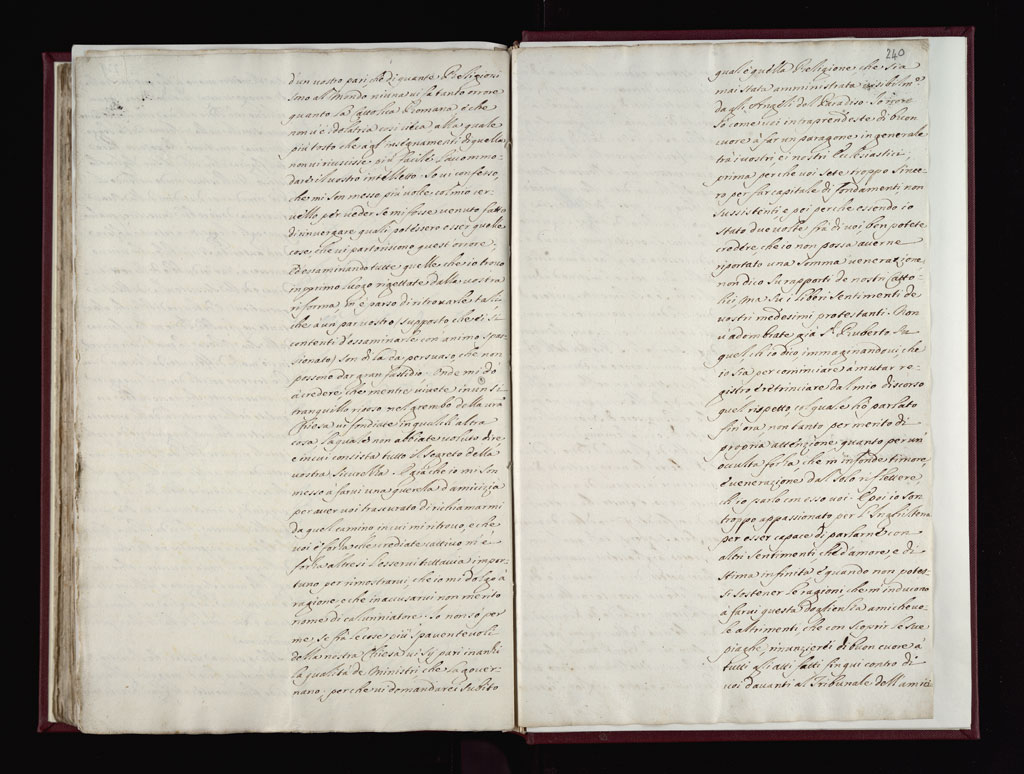 d'un vostro pari che di quante Religioni
sono al Mondo niuna vi fa tanto orrore
quanto la Cattolica Romana è che
non v'è idolatria così vitica alla quale
più tosto che agl'insegnamenti di quella
non vi riuscisse più facile l'accommo-
dare il vostro intelletto. Io vi confesso,
che mi son messo più volte col mio cer-
vello per veder se mi fosse venuto fatto
di invergare quali potessero esser quelle
cose, che vi partoriscono questo orrore,
Ed esaminando tutte quelle, che io trovo
in primo luogo rigettate dalla vostra
riforma, m'è parso di ritrovarle tali,
che à un par vostro (supposto che vi si
contenti d'essaminarle con animo spas-
sionato) son di là da persuaso, che non
possono dar gran fastidio. Onde mi dò
à credere, che mentre vivete in un sì
tranquillo riposo nel grembo della vr̃a
Chiesa vi fondiate in qualch'altra
cosa la quale non abbiate voluto dire
e in cui consista tutto il segreto della
vostra sicurezza. Ma già che io mi son
messo à farvi una querella d'amicizia
per aver voi trascurato di richiamarmi
da quel camino in cui mi ritrovo, e che
voi è forza che crediate cattivo, m'è
forza altresì l'esservi tuttavia impor-
tuno, per rimostrarvi, che io mi dolgo à
ragione, e che in accusarvi non merito
nome di calunniatore. Io non so per
me, se frà le cose più spaventevoli
della nostra Chiesa vi si pari inanzi
la qualità de Ministri che la gover-
nano, perche vi domandarei subito
240
qual è quella Religione che sia
mai stata amministrata visibilmte
da gli Angeli del Paradiso. Io non
sò come voi intraprendeste di buon
cuore à far un paragone in generale
trà i vostri e i nostri Ecclesiastici,
prima perche voi sete troppo since-
ro per far capitale di fondamenti non
sussistenti, e poi perche essendo io
stato due volte frà di voi, ben potete
credere che io non possa averne
riportato una somma venerazione,
non dico su rapporti de nostri Catto-
lici, ma su i liberi sentimenti de
vostri medesimi protestanti. Non
v'adombrate già Sr. Ruberto da
quel ch'io dico, immaginandovi, che
io sia per cominciare à mutar re-
gistro, e trinciare dal mio discorso
quel rispetto, col quale hò parlato
fin'ora non tanto per merito di
propria attenzione quanto per un'
occulta forza, che m'infonde timore,
e venerazione dal solo riflettere,
ch'io parlo con esso voi. E poi io son
troppo appassionato per l'Inghilterra
per esser capace di parlarne con
altri sentimenti che d'amore, e di
stima infinita e quando non potes-
si sostener le ragioni, che m'inducono
à farvi questa doglienza amichevo-
le altrimenti, che con scoprir le sue
piaghe, rinanzierei di buon cuore à
tutti gli atti fatti fin qui contro di
voi davanti al Tribunale dell'amici